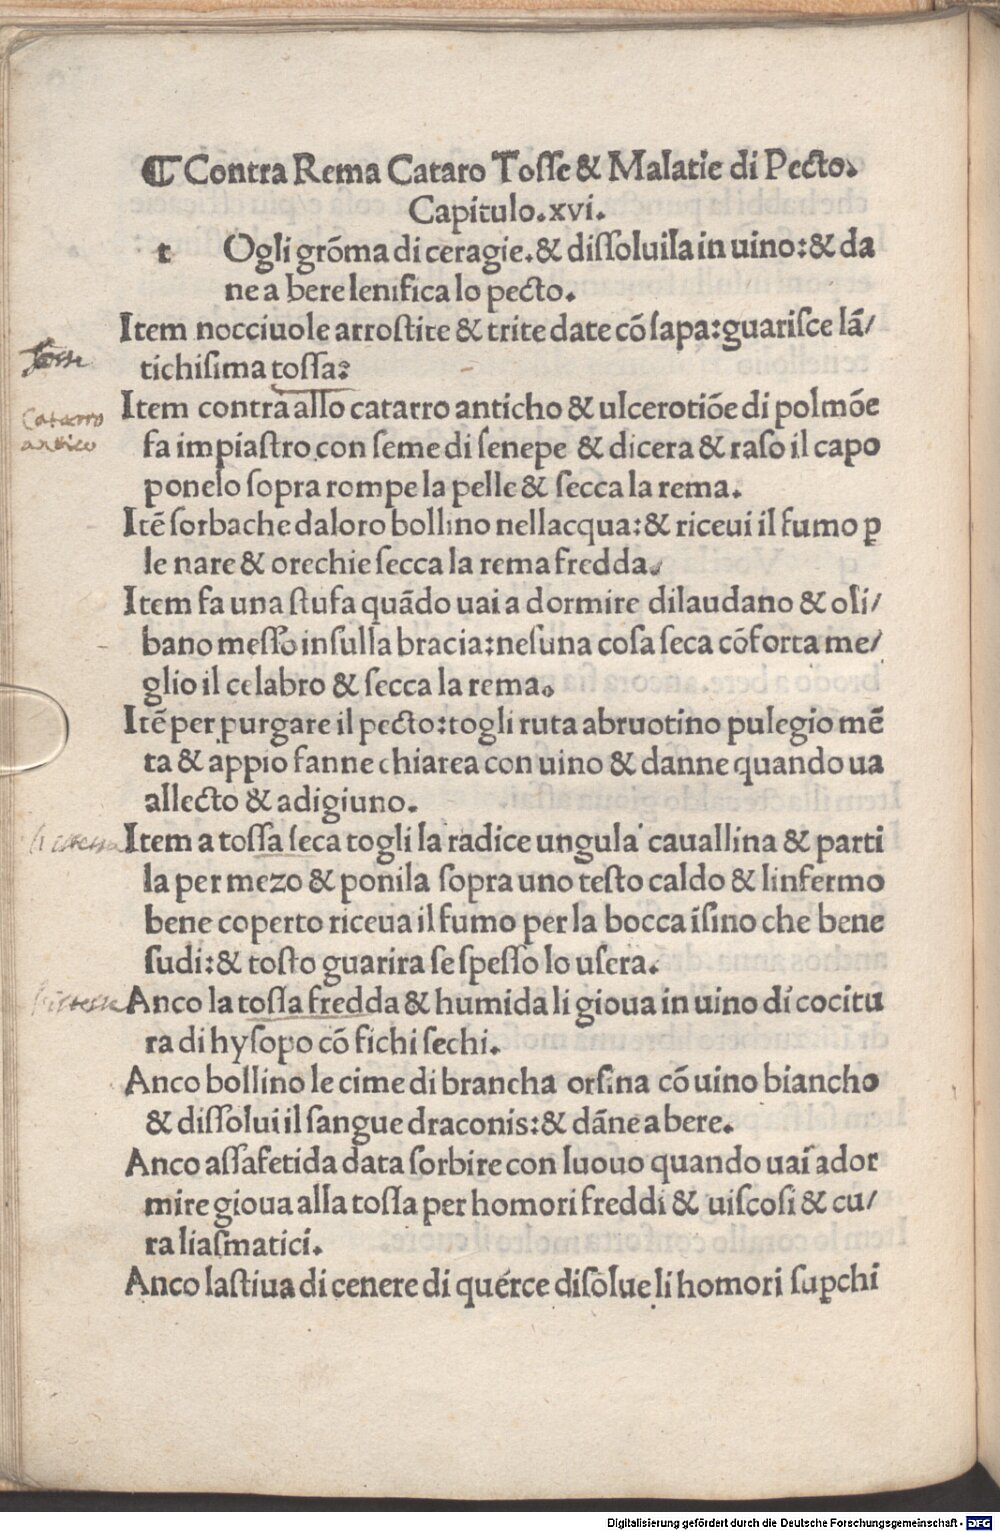 ¶ Contra Rema Cataro Toſſe & Malatie di Pecto.
Capitulo.xvi.
t Ogli grõma di ceragie.& diſſoluila in uino:& da
ne a bere lenifica lo pecto.
Item nocciuole arroſtite & trite date cõ ſapa:guariſce lã/
tichiſima toſſa:
Tosse
Item contra allo catarro anticho & ulcerotiõe di polmõe
Catarro
antico
fa impiaſtro con ſeme di ſenepe & di cera & raſo il capo
ponelo ſopra rompe la pelle & ſecca la rema.
Itẽ ſorbache daloro bollino nellacqua:& riceui il fumo ꝑ
le nare & orechie ſecca la rema fredda.
Item fa una ſtufa quãdo uai a dormire dilaudano & oli/
bano meſſo inſulla bracia:neſuna coſa ſeca cõforta me/
glio il celabro & ſecca la rema.
Itẽ per purgare il pecto:togli ruta abruotino pulegio mẽ
ta & appio fanne chiarea con uino & danne quando ua
allecto & adigiuno.
Item a toſſa ſeca togli la radice ungula cauallina & parti
la per mezo & ponila ſopra uno teſto caldo & linfermo
bene coperto riceua il fumo per la bocca iſino che bene
ſudi:& toſto guarira ſe ſpeſſo lo uſera.
Anco la toſſa fredda & humida li gioua in uino di cocitu
ra di hyſopo cõ fichi ſechi.
Anco bollino le cime di brancha orſina cõ uino biancho
& diſſolui il ſangue draconis:& dãne a bere.
Anco aſſafetida data ſorbire con luouo quando uai ador
mire gioua alla toſſa per homori freddi & uiſcoſi & cu/
ra liaſmatici.
Anco laſtiua di cenere di querce diſolue li homori ſuꝑchi
Digitalisierung gefördert durch die Deutsche Forschungsgemeinschaft - DFG